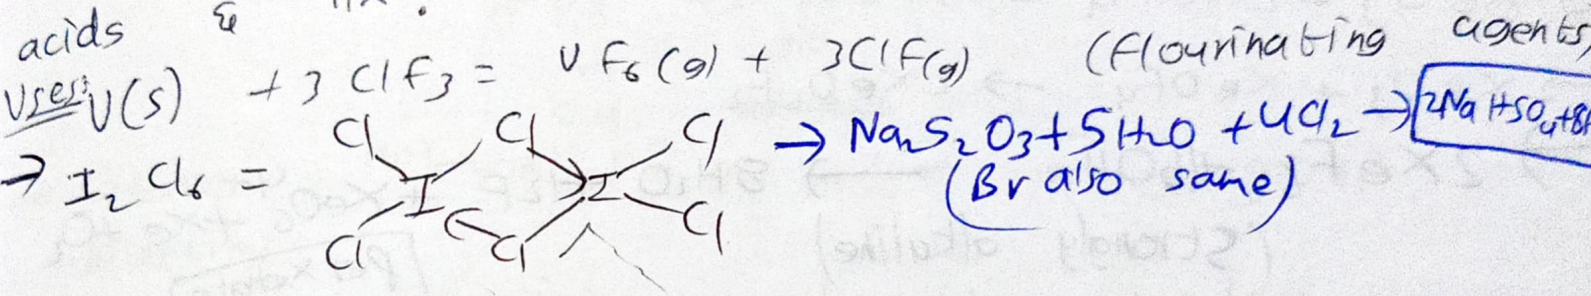 acids &
Uses: U(s) + 3 ClF3 = UF6(g) + 3ClF(g) (flourinating agents)
→ I2Cl6 = Cl Cl Cl I I Cl Cl Cl
→ Na2S2O3 + 5H2O + 4Cl2 → 2NaHSO4 + 8
(Br also same)